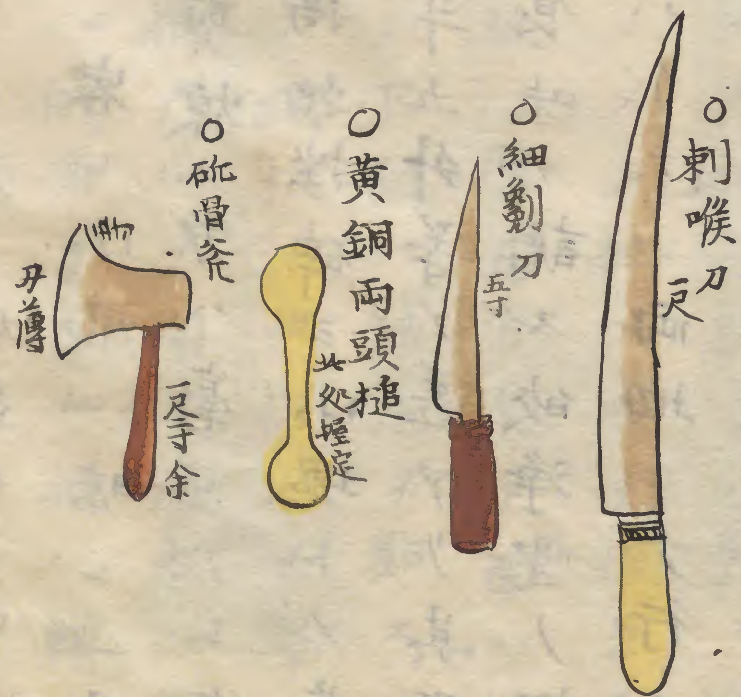 ○刺喉刀
一尺
○細剶刀
五寸
○黄銅両頭槌
此処握定
○砍骨斧
一尺一寸余
刃薄